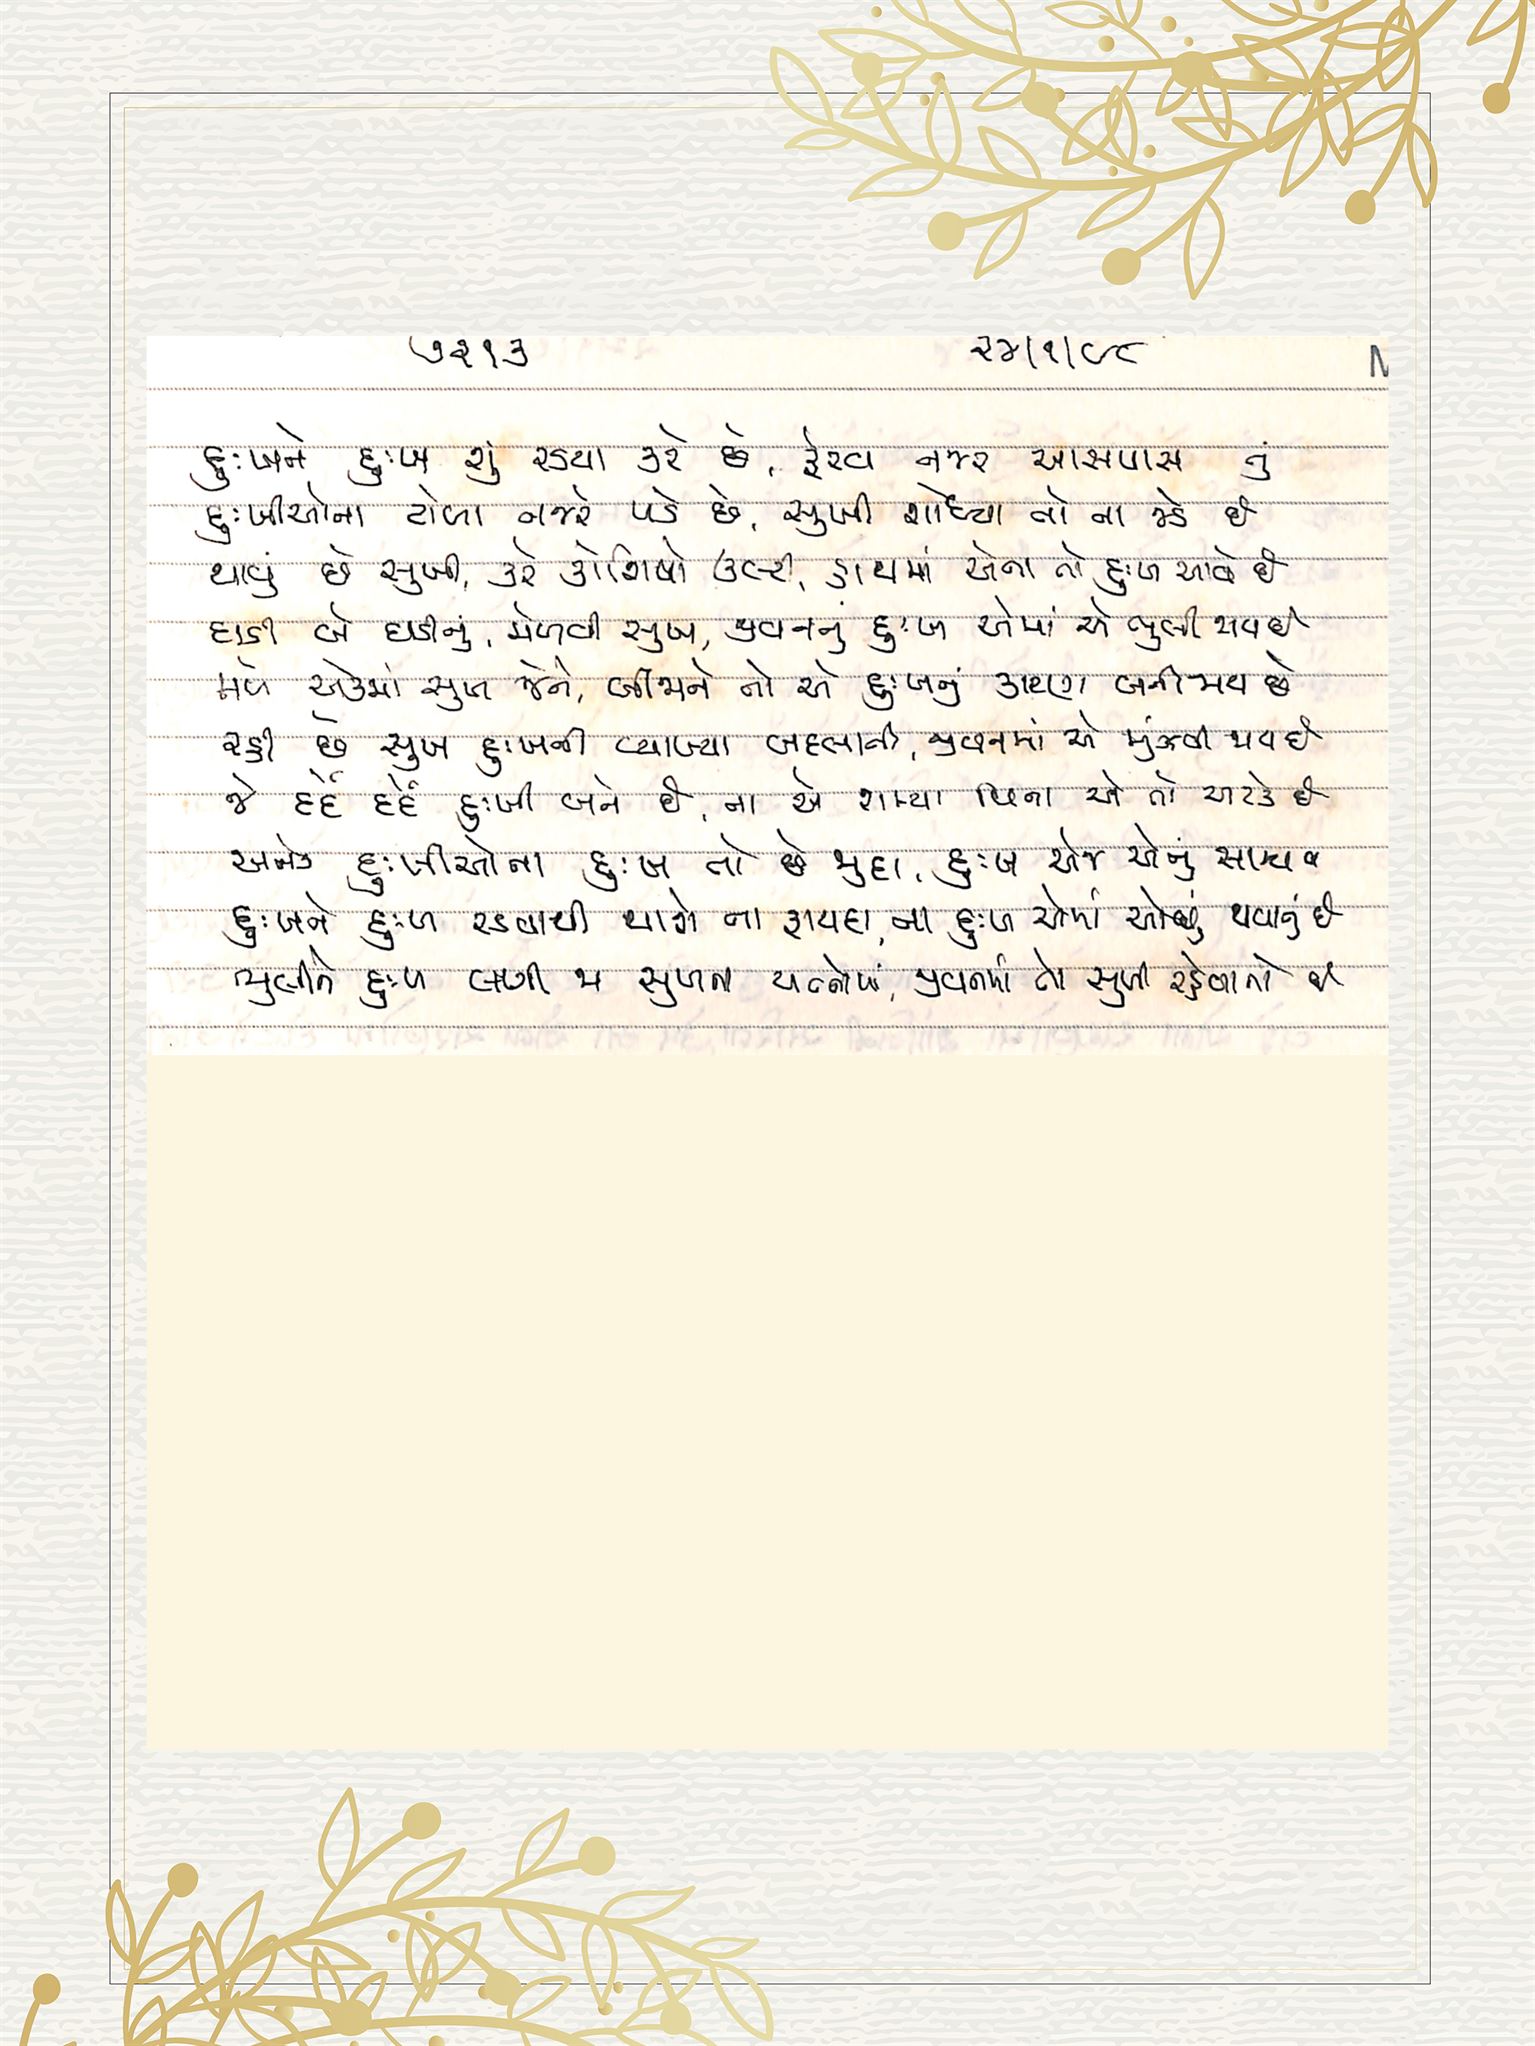 ૭૨૧૩ ૨૪/૧/૯૮
દુઃખને દુઃખ શું રડયા કરે છે, ફેરવ નજર આસપાસ તું
દુઃખીઓના ટોળા નજરે પડે છે, સુખી શોધ્યા તો ના જડે છે
થાવું છે સુખી, કરે કોશિષો ઉલ્ટી, હાથમાં એના તો દુઃખ આવે છે
ઘડી બે ઘડીનું, મેળવી સુખ, જીવનનું દુઃખ એમાં એ ભુલી જાય છે
મળે એકમાં સુખ જેને, બીજાને તો એ દુઃખનું કારણ બની જાય છે
રહી છે સુખ દુઃખની વ્યાખ્યા બદલાતી, જીવનમાં એ મુંઝવી જાય છે
જે દર્દે દર્દે દુઃખી બને છે, ના એ શમ્યા વિના એ તો અટકે છે
અનેક દુઃખીઓના દુઃખ તો છે જુદા, દુઃખ એજ એનું સામ્ય
દુઃખને દુઃખ રડવાથી થાશે ના ફાયદા, ના દુઃખ એમાં ઓછું થવાનું છે
ભુલીને દુઃખ લાગી જા સુખના યત્નોમાં, જીવનમાં તો સુખી રહેવાનો છે